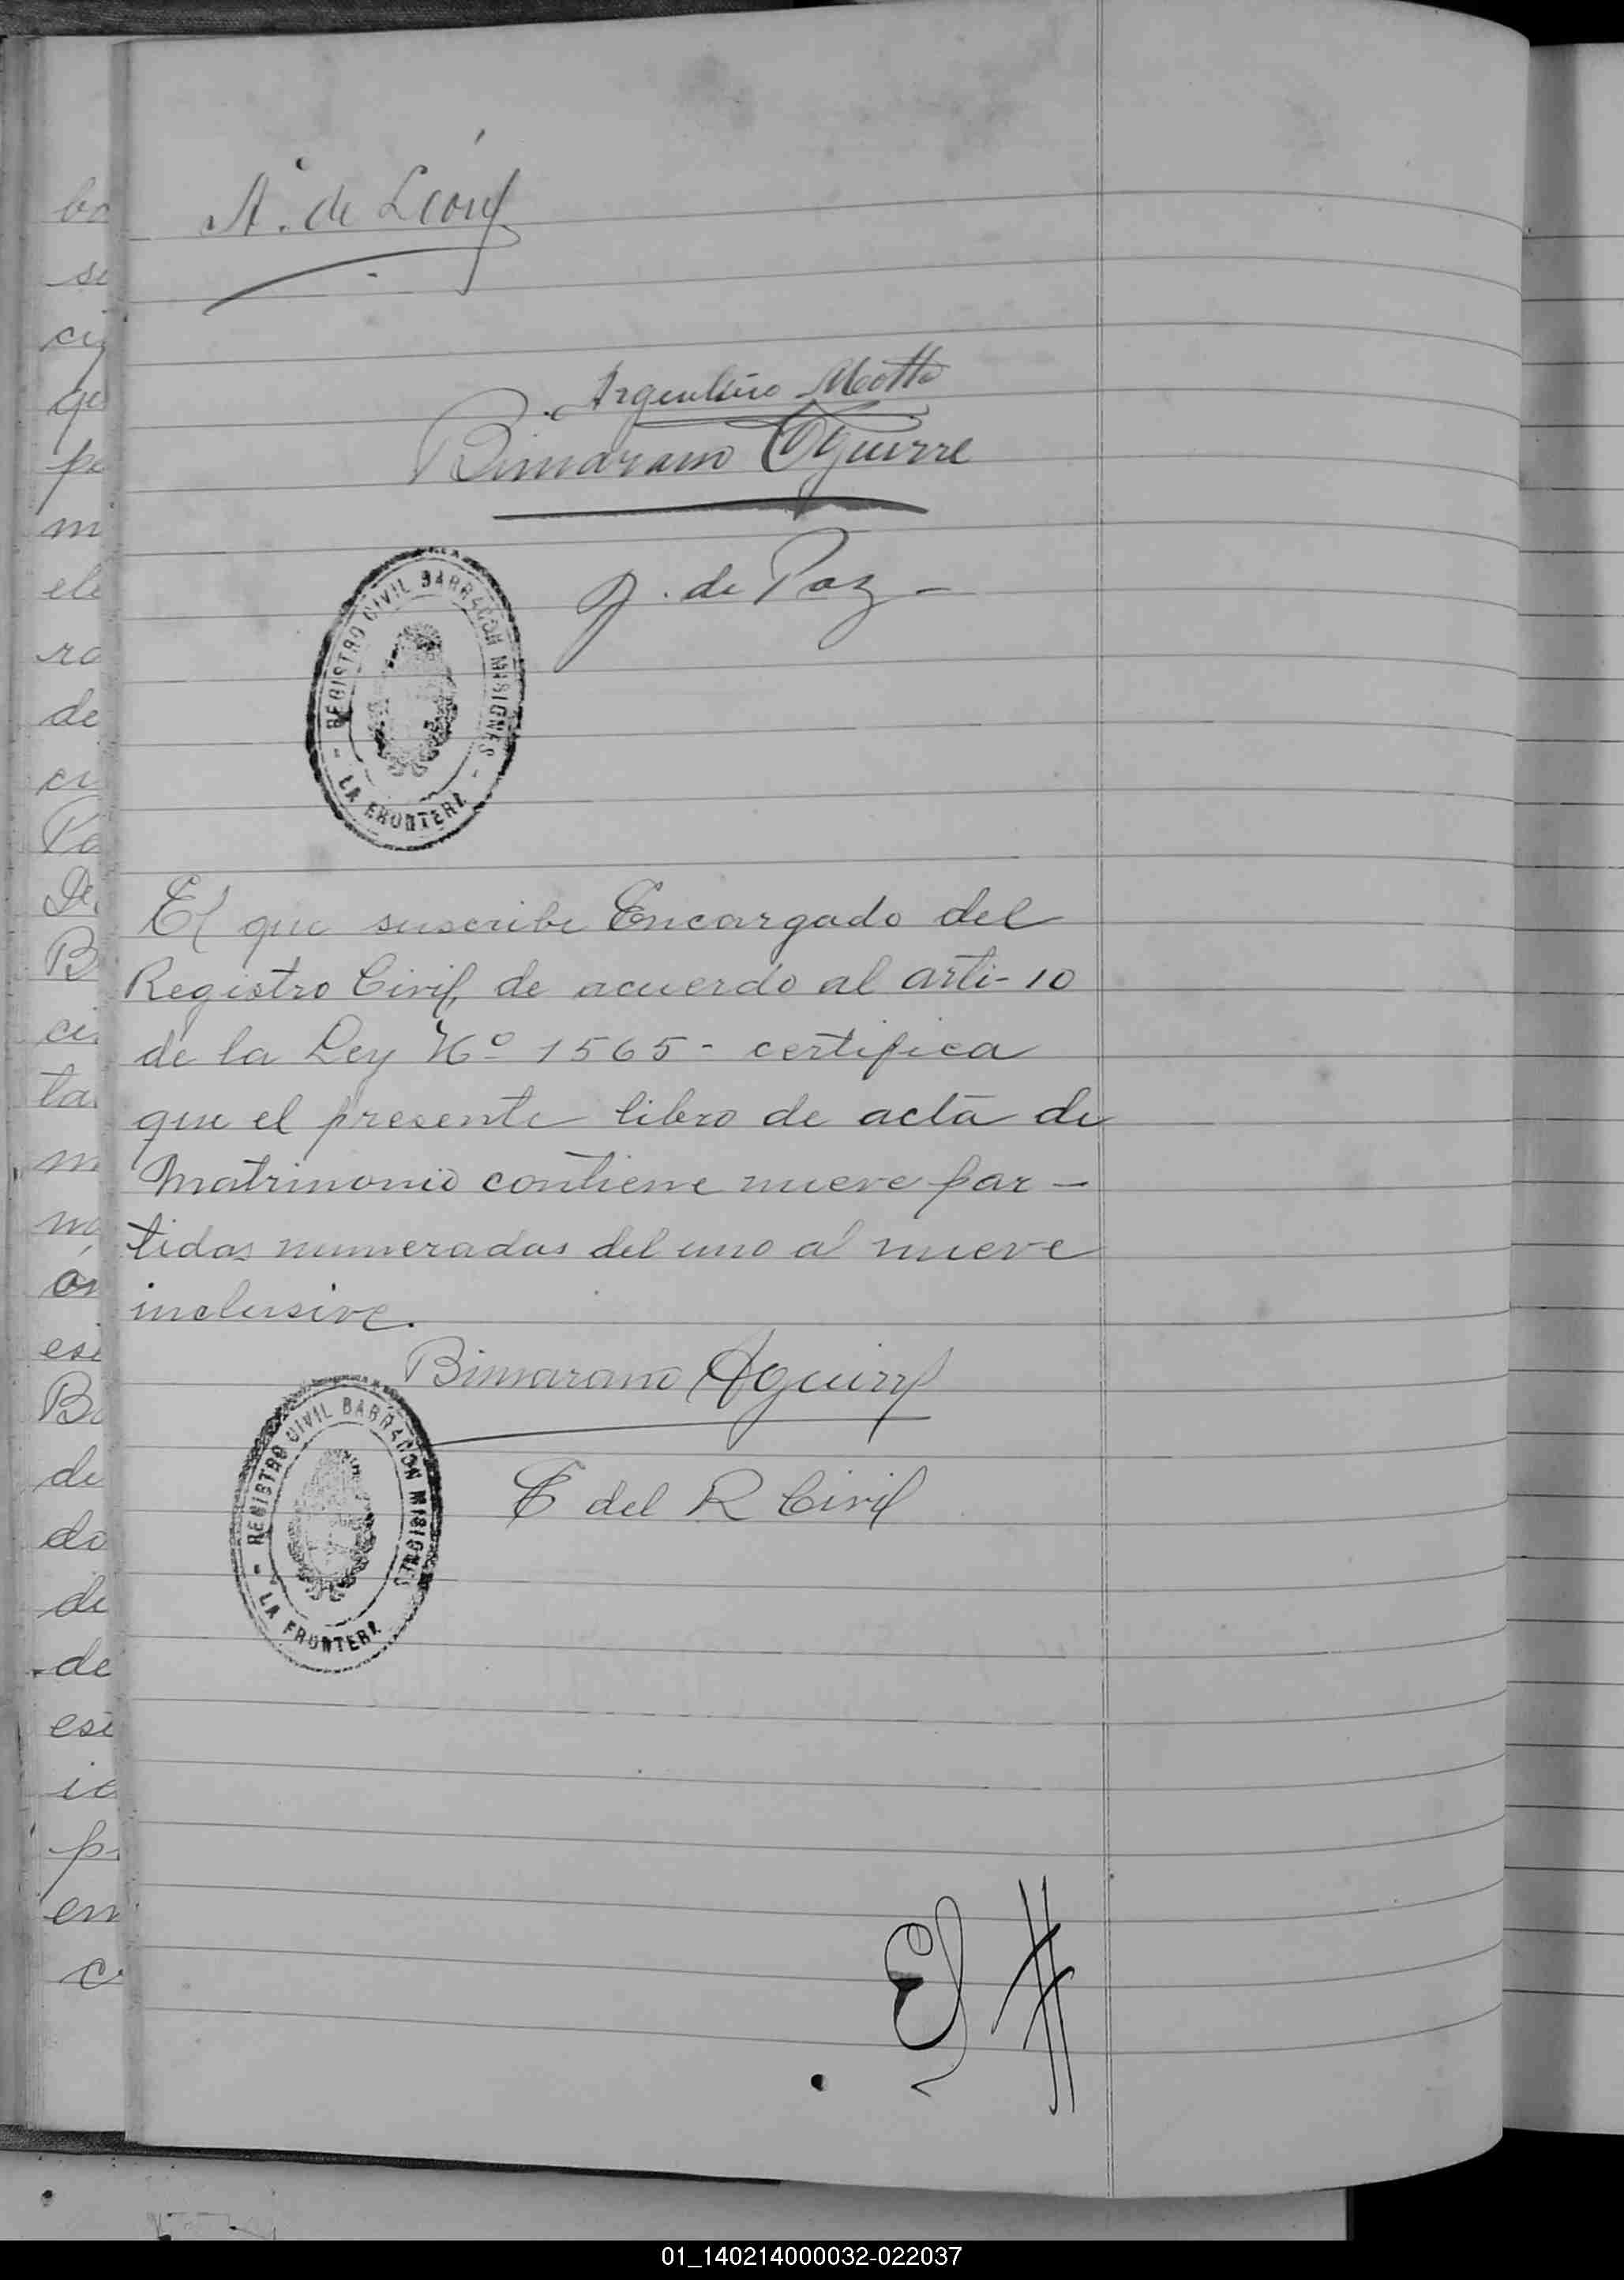 A. de León
Argentino Motta
Bimarano Aguirre
J. de Paz -
- REGISTRO CIVIL BARRACON MISIONES -
LA FRONTERA
El que suscribe Encargado del
Registro Civil, de acuerdo al arti- 10
de la Ley Nº 1565 - certifica
que el presente libro de acta de
Matrimonio contiene nueve par-
tidas numeradas del uno al nueve
inclusive.
Bimarano Aguirre
- REGISTRO CIVIL BARRACON MISIONES
LA FRONTERA
E del R Civil
01_140214000032-022037